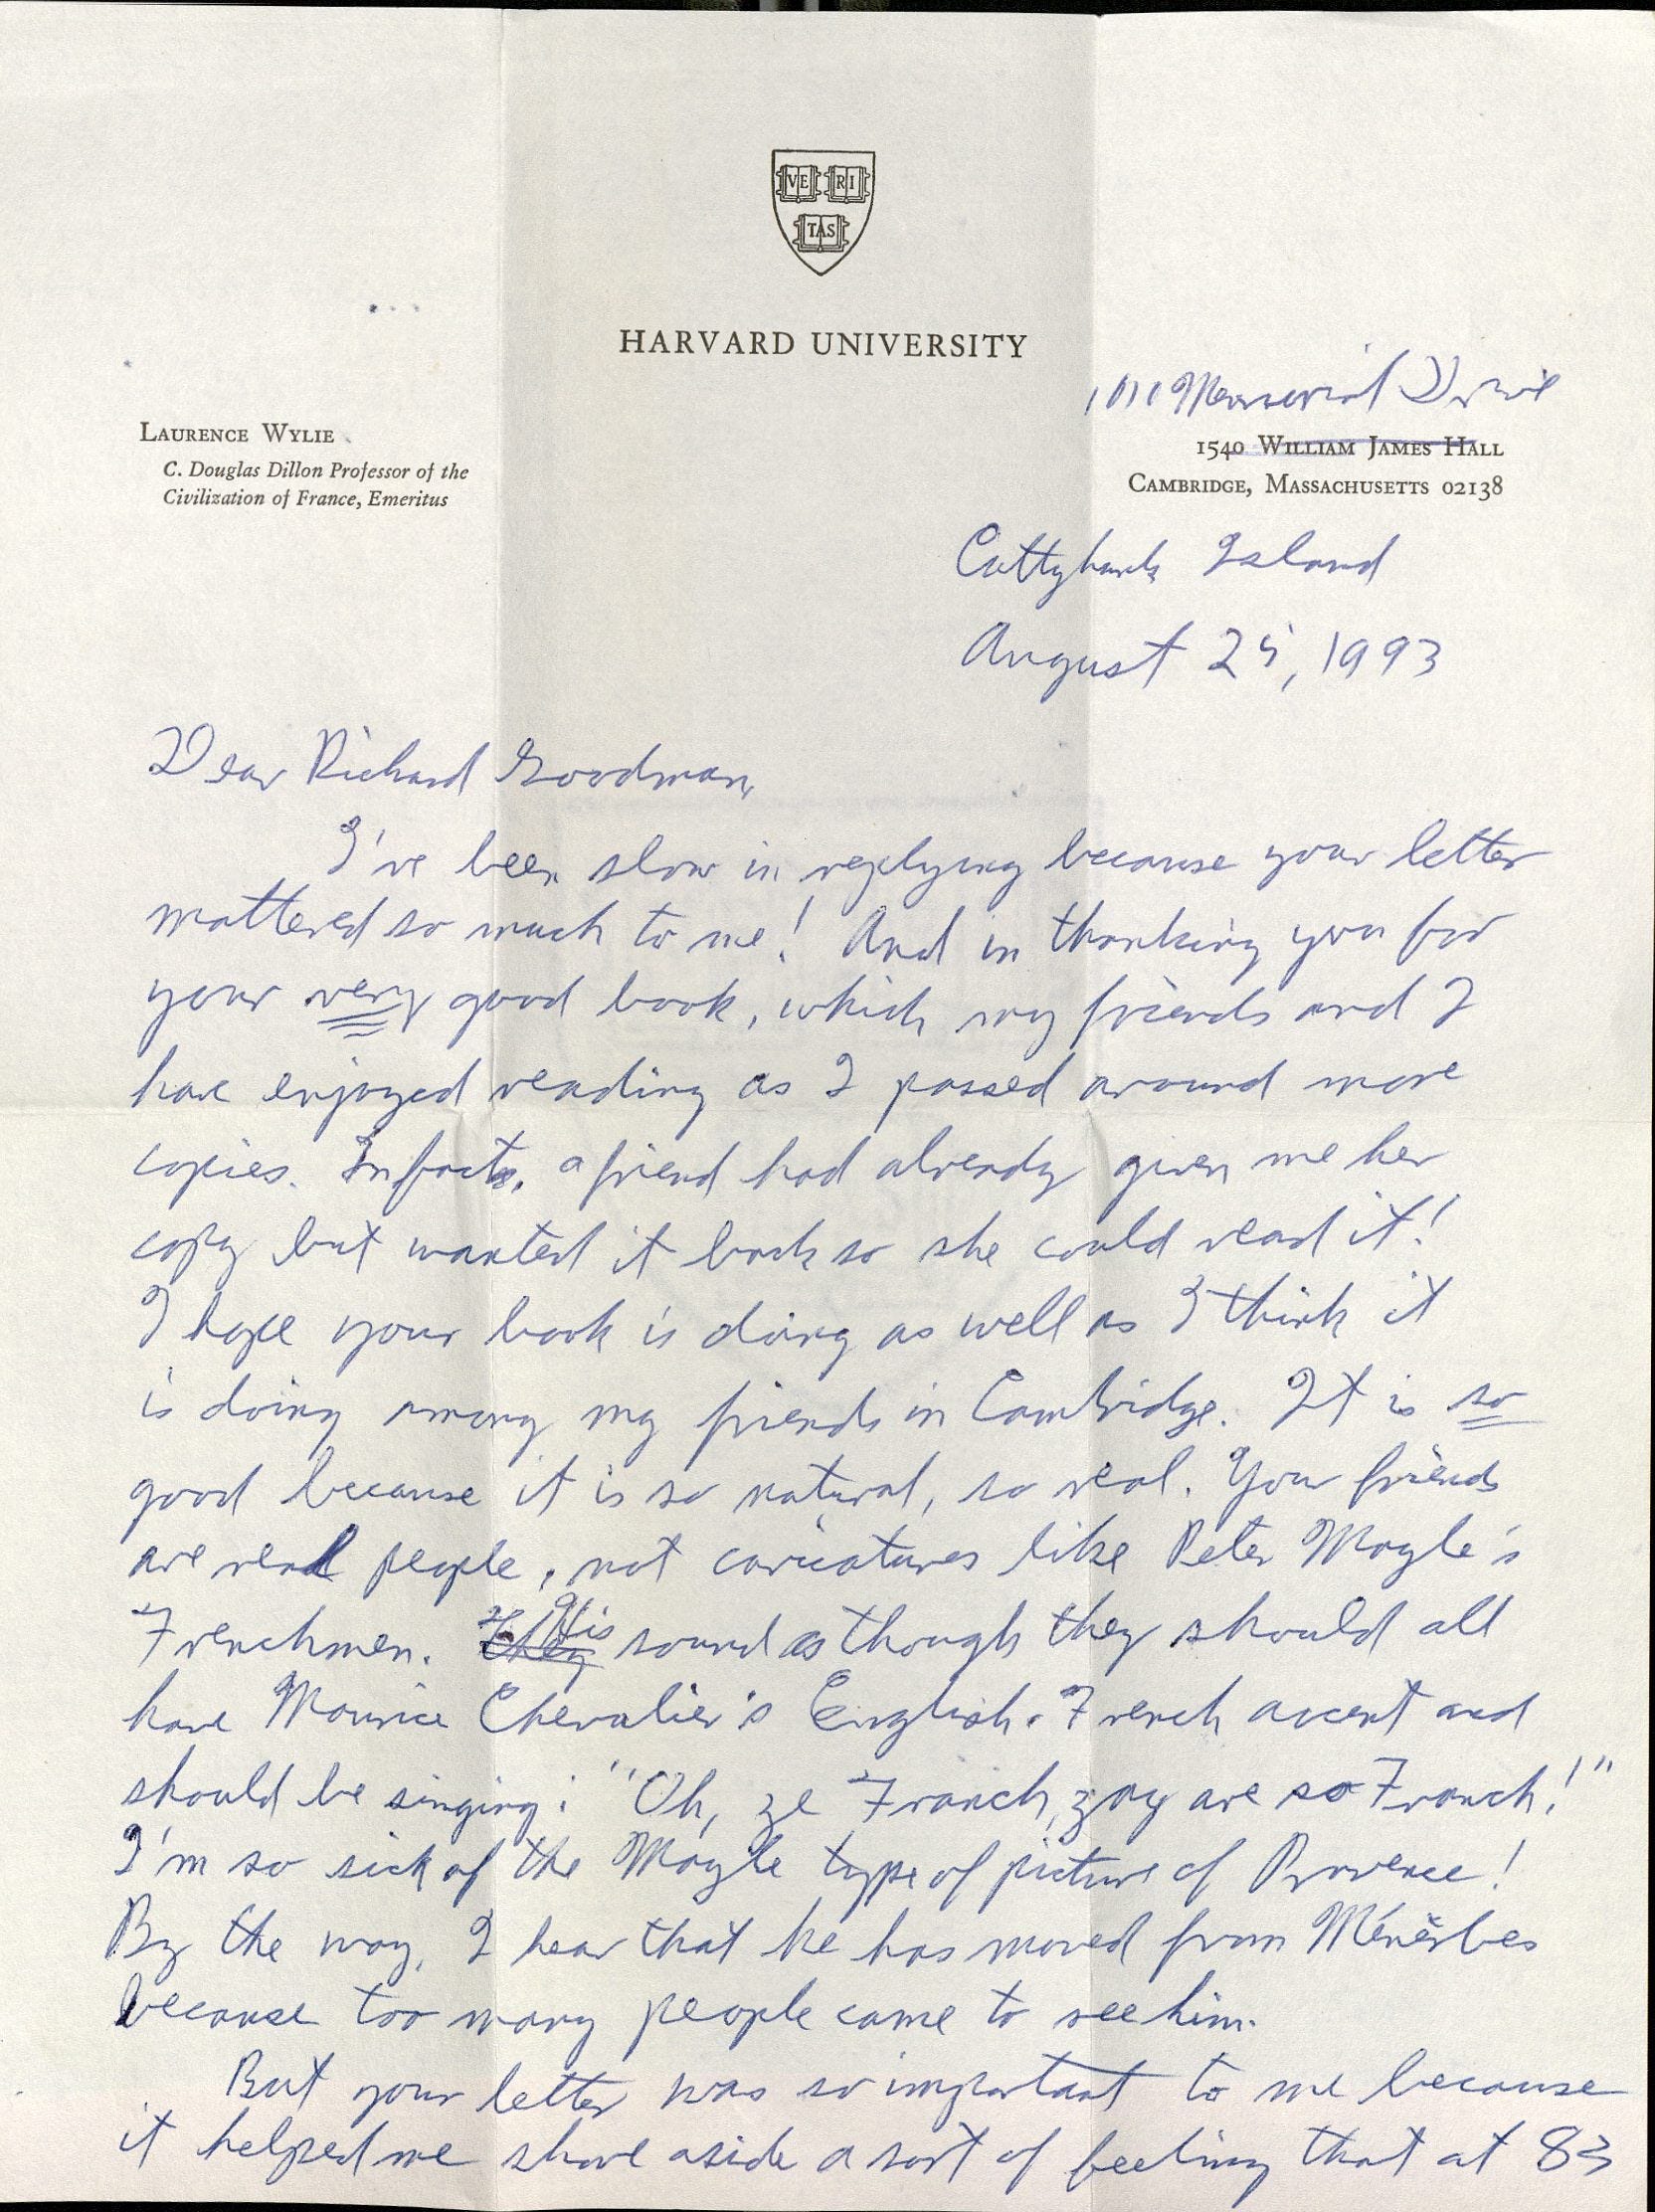 VE RI
TAS
HARVARD UNIVERSITY
1010 Memorial Drive
LAURENCE WYLIE
1540 WILLIAM JAMES HALL
C. Douglas Dillon Professor of the
Civilization of France, Emeritus
CAMBRIDGE, MASSACHUSETTS 02138
Cuttyhunk Island
August 25, 1993
Dear Richard Goodman,
I've been slow in replying because your letter
mattered so much to me! And in thanking you for
your very good book, which my friends and I
have enjoyed reading as I passed around more
copies. In fact, a friend had already given me her
copy but wanted it back so she could read it!
I hope your book is doing as well as I think it
is doing among my friends in Cambridge. It is so
good because it is so natural, so real. Your friends
are real people, not caricatures like Peter Mayle's
Frenchmen. They His sound as though they should all
have Maurice Chevalier's English-French accent and
should be singing: "Oh, ze Franch, zay are so Franch!"
I'm so sick of the Mayle type of picture of Provence!
By the way, I hear that he has moved from Ménèrbes
because too many people came to see him.
But your letter was so important to me because
it helped me shove aside a sort of feeling that at 83